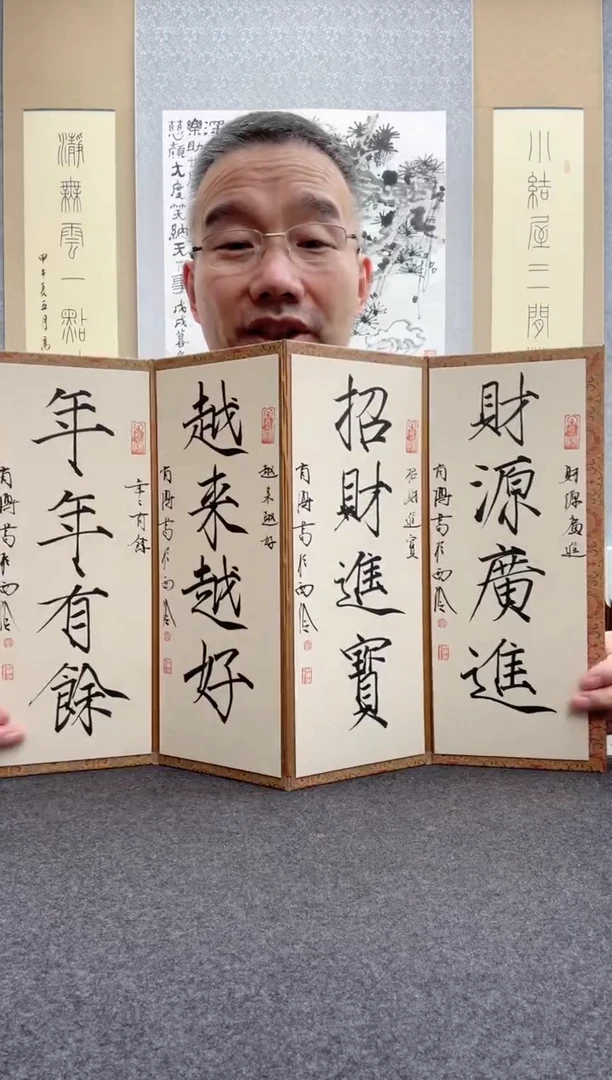 小結屋三間
深
樂助
慈顏大度笑納天下事戊戌暮
瀞無雲一點
甲午夏五月
財源廣進
財源廣進
招財進寶
招財進寶
越来越好
越来越好
年年有餘
年々有餘